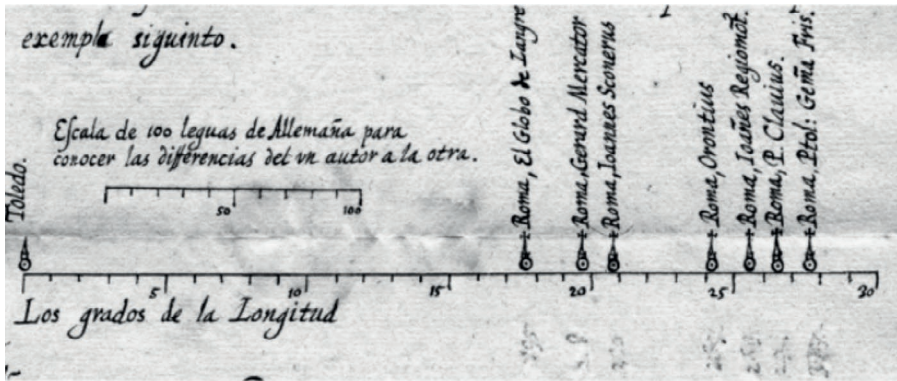 exempla siguinto.
Escala de 100 leguas de Allemaña para
conocer las differencias del vn autor a la otra.
50 100
Toledo.
Roma, El Globo de Langre
Roma, Gerard Mercator
Roma, Ioannes Sconerus
Roma, Orontius
Roma, Ioañes Regiomõt.
Roma, P. Clauius.
Roma, Ptol: Geña Fris.
5 10 15 20 25 30
Los grados de la Longitud